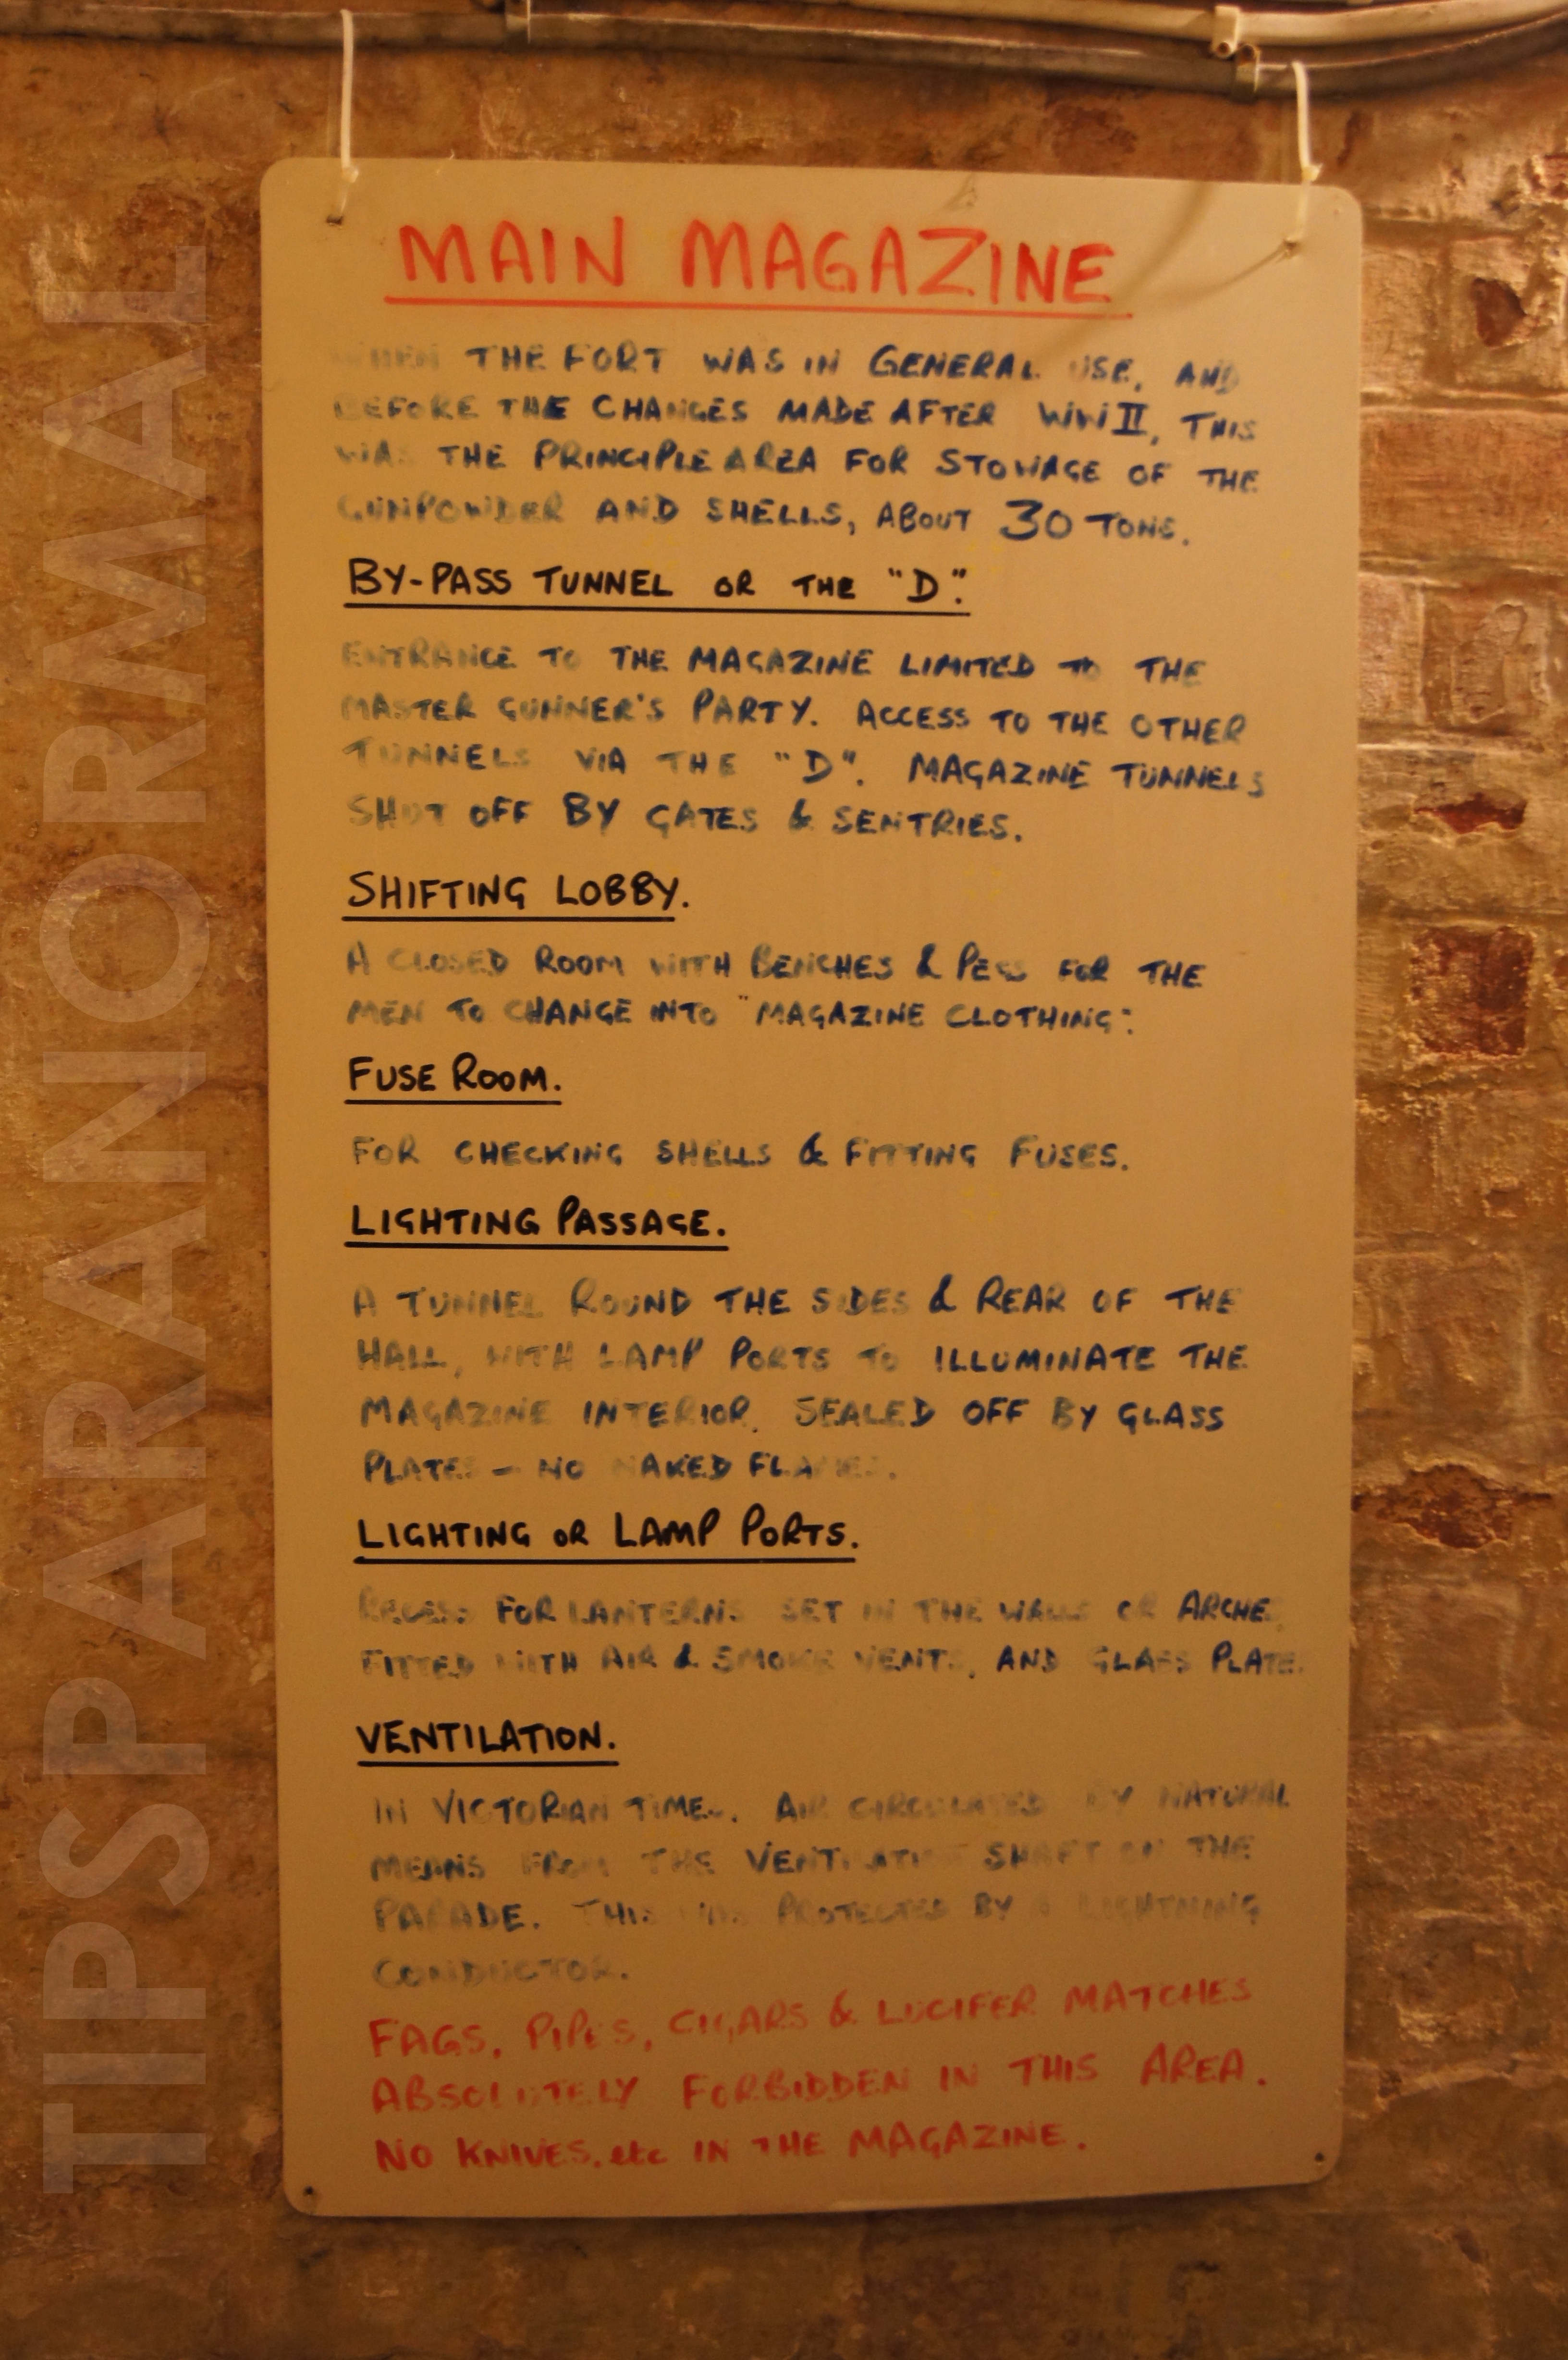 MAIN MAGAZINE
WHEN THE FORT WAS IN GENERAL USE, AND
BEFORE THE CHANGES MADE AFTER WWII, THIS
WAS THE PRINCIPLE AREA FOR STOWAGE OF THE
GUNPOWDER AND SHELLS, ABOUT 30 TONS.
BY-PASS TUNNEL OR THE "D".
ENTRANCE TO THE MAGAZINE LIMITED TO THE
MASTER GUNNER'S PARTY. ACCESS TO THE OTHER
TUNNELS VIA THE "D". MAGAZINE TUNNELS
SHUT OFF BY GATES & SENTRIES.
SHIFTING LOBBY.
A CLOSED ROOM WITH BENCHES & PEGS FOR THE
MEN TO CHANGE INTO "MAGAZINE CLOTHING".
FUSE ROOM.
FOR CHECKING SHELLS & FITTING FUSES.
LIGHTING PASSAGE.
A TUNNEL ROUND THE SIDES & REAR OF THE
HALL, WITH LAMP PORTS TO ILLUMINATE THE
MAGAZINE INTERIOR. SEALED OFF BY GLASS
PLATES - NO NAKED FLAMES.
LIGHTING OR LAMP PORTS.
RECESS FOR LANTERNS SET IN THE WALLS OR ARCHES
FITTED WITH AIR & SMOKE VENTS, AND GLASS PLATE.
VENTILATION.
IN VICTORIAN TIMES. AIR CIRCULATED BY NATURAL
MEANS FROM THE VENTILATION SHAFT ON THE
PARADE. THIS WAS PROTECTED BY A LIGHTNING
CONDUCTOR.
FAGS, PIPES, CIGARS & LUCIFER MATCHES
ABSOLUTELY FORBIDDEN IN THIS AREA.
NO KNIVES, etc IN THE MAGAZINE.
TIPSPARANORMAL